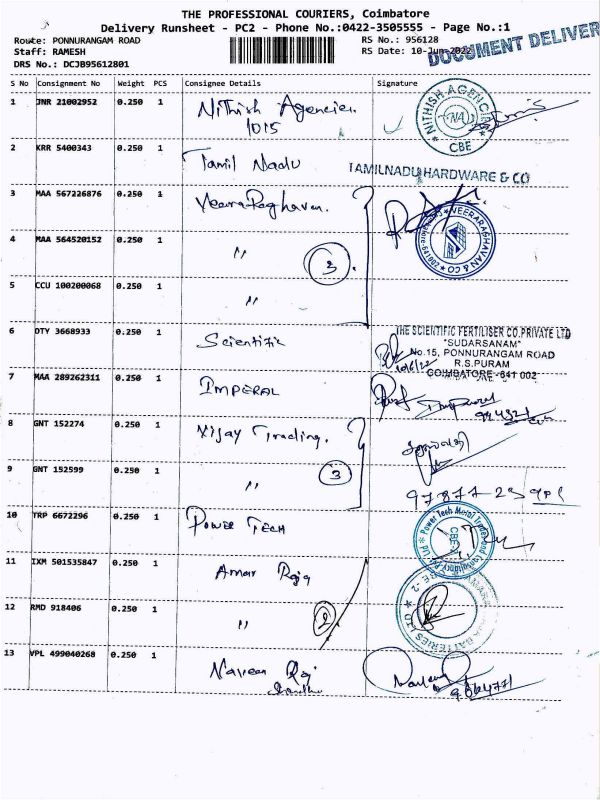 THE PROFESSIONAL COURIERS, Coimbatore
Delivery Runsheet - PC2 - Phone No.:0422-3505555 - Page No.:1
Route: PONNURANGAM ROAD
RS No.: 956128
Staff: RAMESH
RS Date: 10-Jun-2022
DOCUMENT DELIVER
DRS No.: DCJB95612801
S No Consignment No Weight PCS Consignee Details Signature
1 JNR 21002952 0.250 1 Nithish Agencies
1015
NITHISH AGENCIES
NA
CBE
2 KRR 5400343 0.250 1 Tamil Nadu
TAMILNADU HARDWARE & CO
3 MAA 567226876 0.250 1 VeeraRaghavan.
VEERARAGHAVAN & CO
4 MAA 564520152 0.250 1 "
3
5 CCU 100200068 0.250 1 "
6 DTY 3668933 0.250 1 Scientific
THE SCIENTIFIC FERTILISER CO.PRIVATE LTD
"SUDARSANAM"
No.15, PONNURANGAM ROAD
R.S.PURAM
COIMBATORE-641 002
7 MAA 289262311 0.250 1 IMPERAL
8 GNT 152274 0.250 1 Vijay Trading.
9 GNT 152599 0.250 1 "
3
10 TRP 6672296 0.250 1 POWER TECH
CBE
11 IXM 501535847 0.250 1 Amar Raja
12 RMD 918406 0.250 1 "
2
13 VPL 499040268 0.250 1 Naveen Raj